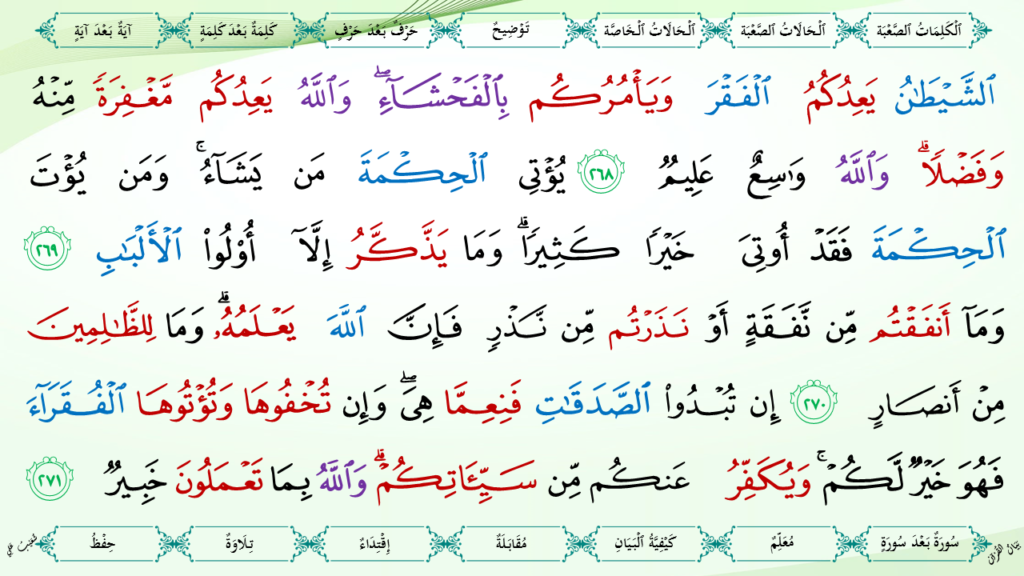 ٱلْكَلِمَاتُ ٱلصَّعْبَة ٱلْحَالَاتُ ٱلصَّعْبَة ٱلْحَالَاتُ ٱلْخَاصَّة تَوْضِيحٌ حَرْفٌ بَعْدَ حَرْفٍ كَلِمَةٌ بَعْدَ كَلِمَةٍ آيَةٌ بَعْدَ آيَةٍ
ٱلشَّيْطَٰنُ يَعِدُكُمُ ٱلْفَقْرَ وَيَأْمُرُكُم بِٱلْفَحْشَآءِ ۖ وَٱللَّهُ يَعِدُكُم مَّغْفِرَةً مِّنْهُ
وَفَضْلًا ۗ وَٱللَّهُ وَٰسِعٌ عَلِيمٌ ٢٦٨ يُؤْتِى ٱلْحِكْمَةَ مَن يَشَآءُ ۚ وَمَن يُؤْتَ
ٱلْحِكْمَةَ فَقَدْ أُوتِىَ خَيْرًا كَثِيرًا ۗ وَمَا يَذَّكَّرُ إِلَّآ أُو۟لُوا۟ ٱلْأَلْبَٰبِ ٢٦٩
وَمَآ أَنفَقْتُم مِّن نَّفَقَةٍ أَوْ نَذَرْتُم مِّن نَّذْرٍ فَإِنَّ ٱللَّهَ يَعْلَمُهُۥ ۗ وَمَا لِلظَّٰلِمِينَ
مِنْ أَنصَارٍ ٢٧٠ إِن تُبْدُوا۟ ٱلصَّدَقَٰتِ فَنِعِمَّا هِىَ ۖ وَإِن تُخْفُوهَا وَتُؤْتُوهَا ٱلْفُقَرَآءَ
فَهُوَ خَيْرٌ لَّكُمْ ۚ وَيُكَفِّرُ عَنكُم مِّن سَيِّـَٔاتِكُمْ ۗ وَٱللَّهُ بِمَا تَعْمَلُونَ خَبِيرٌ ٢٧١
سُورَةٌ بَعْدَ سُورَةٍ مُعَلِّمٌ كَيْفِيَّةُ ٱلْبَيَانِ مُقَابَلَةٌ إِقْتِدَاءٌ تِلَاوَةٌ حِفْظٌ
بَيَانُ القُرْآن